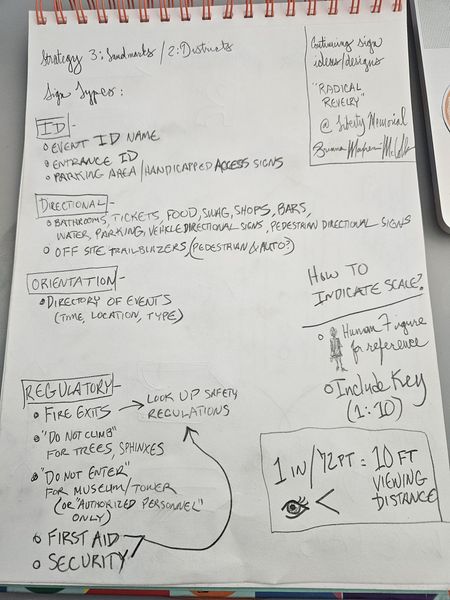 Strategy 3: Landmarks / 2: Districts
Sign Types:
ID -
EVENT ID NAME
ENTRANCE ID
PARKING AREA / HANDICAPPED ACCESS SIGNS
DIRECTIONAL -
BATHROOMS, TICKETS, FOOD, SWAG, SHOPS, BARS,
WATER, PARKING, VEHICLE DIRECTIONAL SIGNS, PEDESTRIAN DIRECTIONAL SIGNS
OFF SITE TRAILBLAZERS, (PEDESTRIAN & AUTO?)
ORIENTATION -
DIRECTORY OF EVENTS
(TIME, LOCATION, TYPE)
REGULATORY -
FIRE EXITS → LOOK UP SAFETY
REGULATIONS
"DO NOT CLIMB"
FOR TREES, SPHINXES
"DO NOT ENTER"
FOR MUSEUM/TOWER
(OR "AUTHORIZED PERSONNEL"
ONLY)
FIRST AID
SECURITY
Continuing sign
ideas/designs
"RADICAL
REVELRY"
@ Liberty Memorial
HOW TO
INDICATE SCALE?
Human Figure
for reference
Include Key
(1:10)
1 IN / 72 PT = 10 FT
VIEWING
DISTANCE